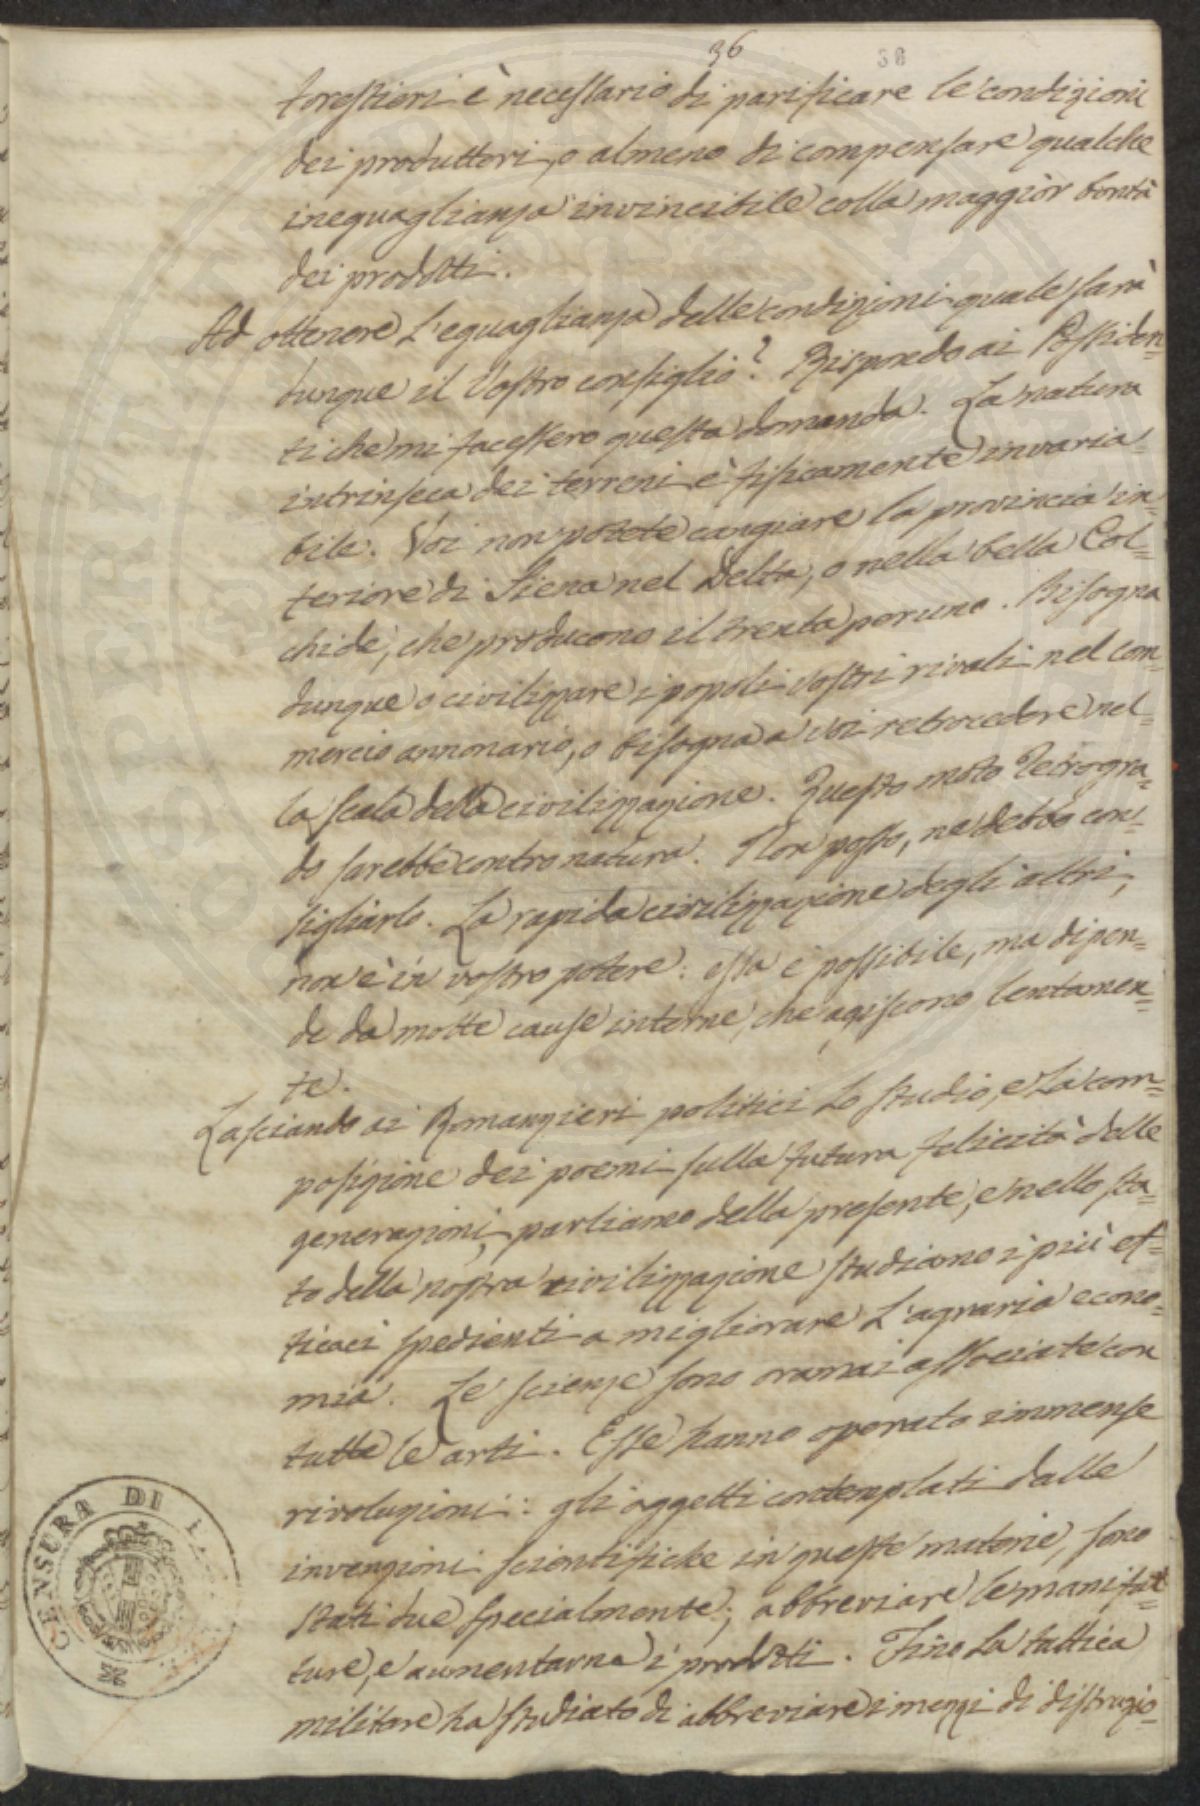 36
36
forestieri è necessario di parificare le condizioni
dei produttori, o almeno di compensare qualche
ineguaglianza invincibile colla maggior bontà
dei prodotti.
Ad ottenere l'eguaglianza delle condizioni quale sarà
dunque il vostro consiglio? Rispondo ai Possiden=
ti che mi facessero questa domanda. La natura
intrinseca dei terreni è fisicamente invaria=
bile. Voi non potete cangiare la provincia in=
teriore di Siena nel Delta, o nella bella Col=
chide, che producono il trenta per uno. Bisogna
dunque o civilizzare i popoli vostri rivali nel com=
mercio annonario, o bisogna a voi retrocedere nel=
la scala della civilizzazione. Questo moto retrogra=
do sarebbe contro natura. Non posso, ne debbo con=
sigliarlo. La rapida civilizzazione degli altri,
non è in vostro potere: essa è possibile, ma dipen=
de da molte cause interne, che agiscono lentamen=
te.
Lasciando ai Romanzieri politici lo studio, e la com=
posizione dei poemi sulla futura felicità delle
generazioni, parliamo della presente, e nello sta=
to della nostra civilizzazione studiamo i più ef=
ficaci spedienti a migliorare l'agraria econo=
mia. Le scienze sono oramai associate con
tutte le arti. Esse hanno operato immense
rivoluzioni: gli oggetti contemplati dalle
invenzioni scientifiche in queste materie, sono
stati due specialmente; abbreviare le manifat=
ture, e aumentarne i prodotti. Fino la tattica
militare ha studiato di abbreviare i mezzi di distruzio=
CENSURA DI